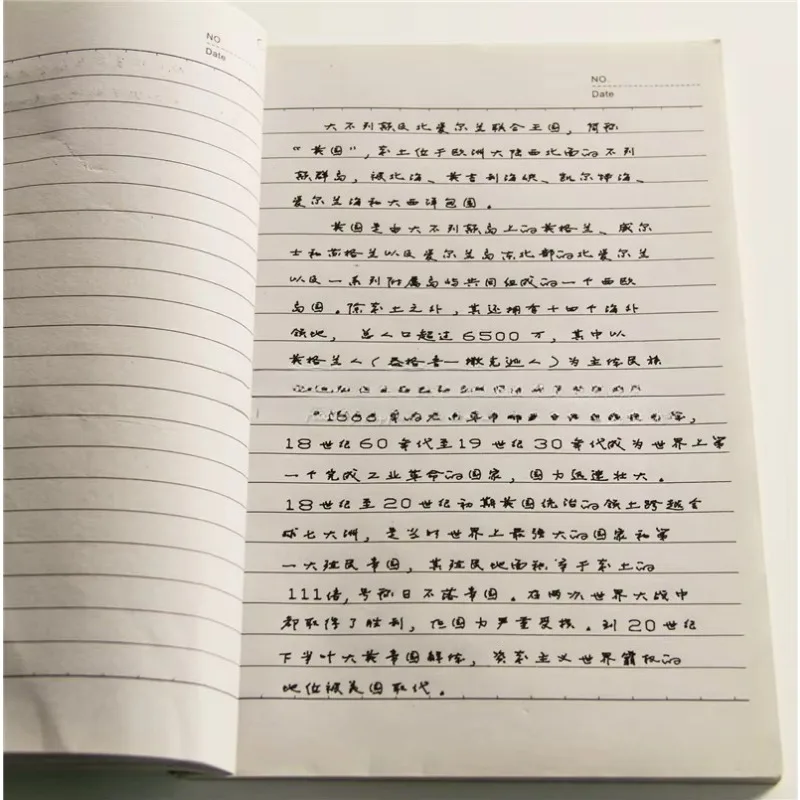 NO
Date
NO.
Date
大不列颠及北爱尔兰联合王国，简称
“英国”，本土位于欧洲大陆西北面的不列
颠群岛，被北海、英吉利海峡、凯尔特海、
爱尔兰海和大西洋包围。
英国是由大不列颠岛上的英格兰、威尔
士和苏格兰以及爱尔兰岛东北部的北爱尔兰
以及一系列附属岛屿共同组成的一个西欧
岛国。除本土之外，其还拥有十四个海外
领地，总人口超过6500万，其中以
英格兰人（盎格鲁一撒克逊人）为主体民族
18世纪60年代至19世纪30年代成为世界上第
一个完成工业革命的国家，国力迅速壮大。
18世纪至20世纪初期英国统治的领土跨越全
球七大洲，是当时世界上最强大的国家和第
一大殖民帝国，其殖民地面积等于本土的
111倍，号称日不落帝国。在两次世界大战中
都取得了胜利，但国力严重受损。到20世纪
下半叶大英帝国解体，资本主义世界霸权的
地位被美国取代。